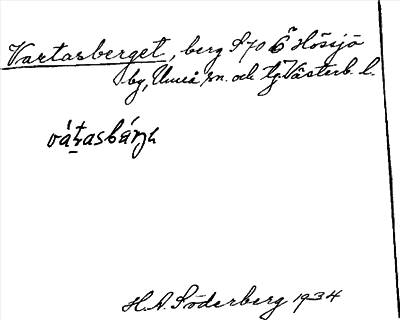 Vartasberget, berg S70 Ö Hössjö
by, Umeå sn. och tg Västerb. l.
vátasbárjh
H.A. Söderberg 1934